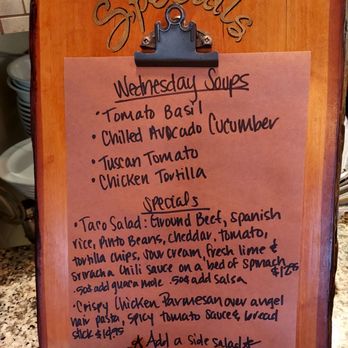 Specials
Wednesday Soups
• Tomato Basil
• Chilled Avocado Cucumber
• Tuscan Tomato
• Chicken Tortilla
Specials
• Taco Salad: Ground Beef, spanish
rice, Pinto Beans, cheddar, tomato,
tortilla chips, sour cream, fresh lime &
sriracha chili sauce on a bed of spinach $12.95
.50¢ add guacamole .50¢ add salsa
• Crispy Chicken Parmesan over angel
hair pasta, spicy tomato sauce & bread
stick $14.95
*Add a side salad*